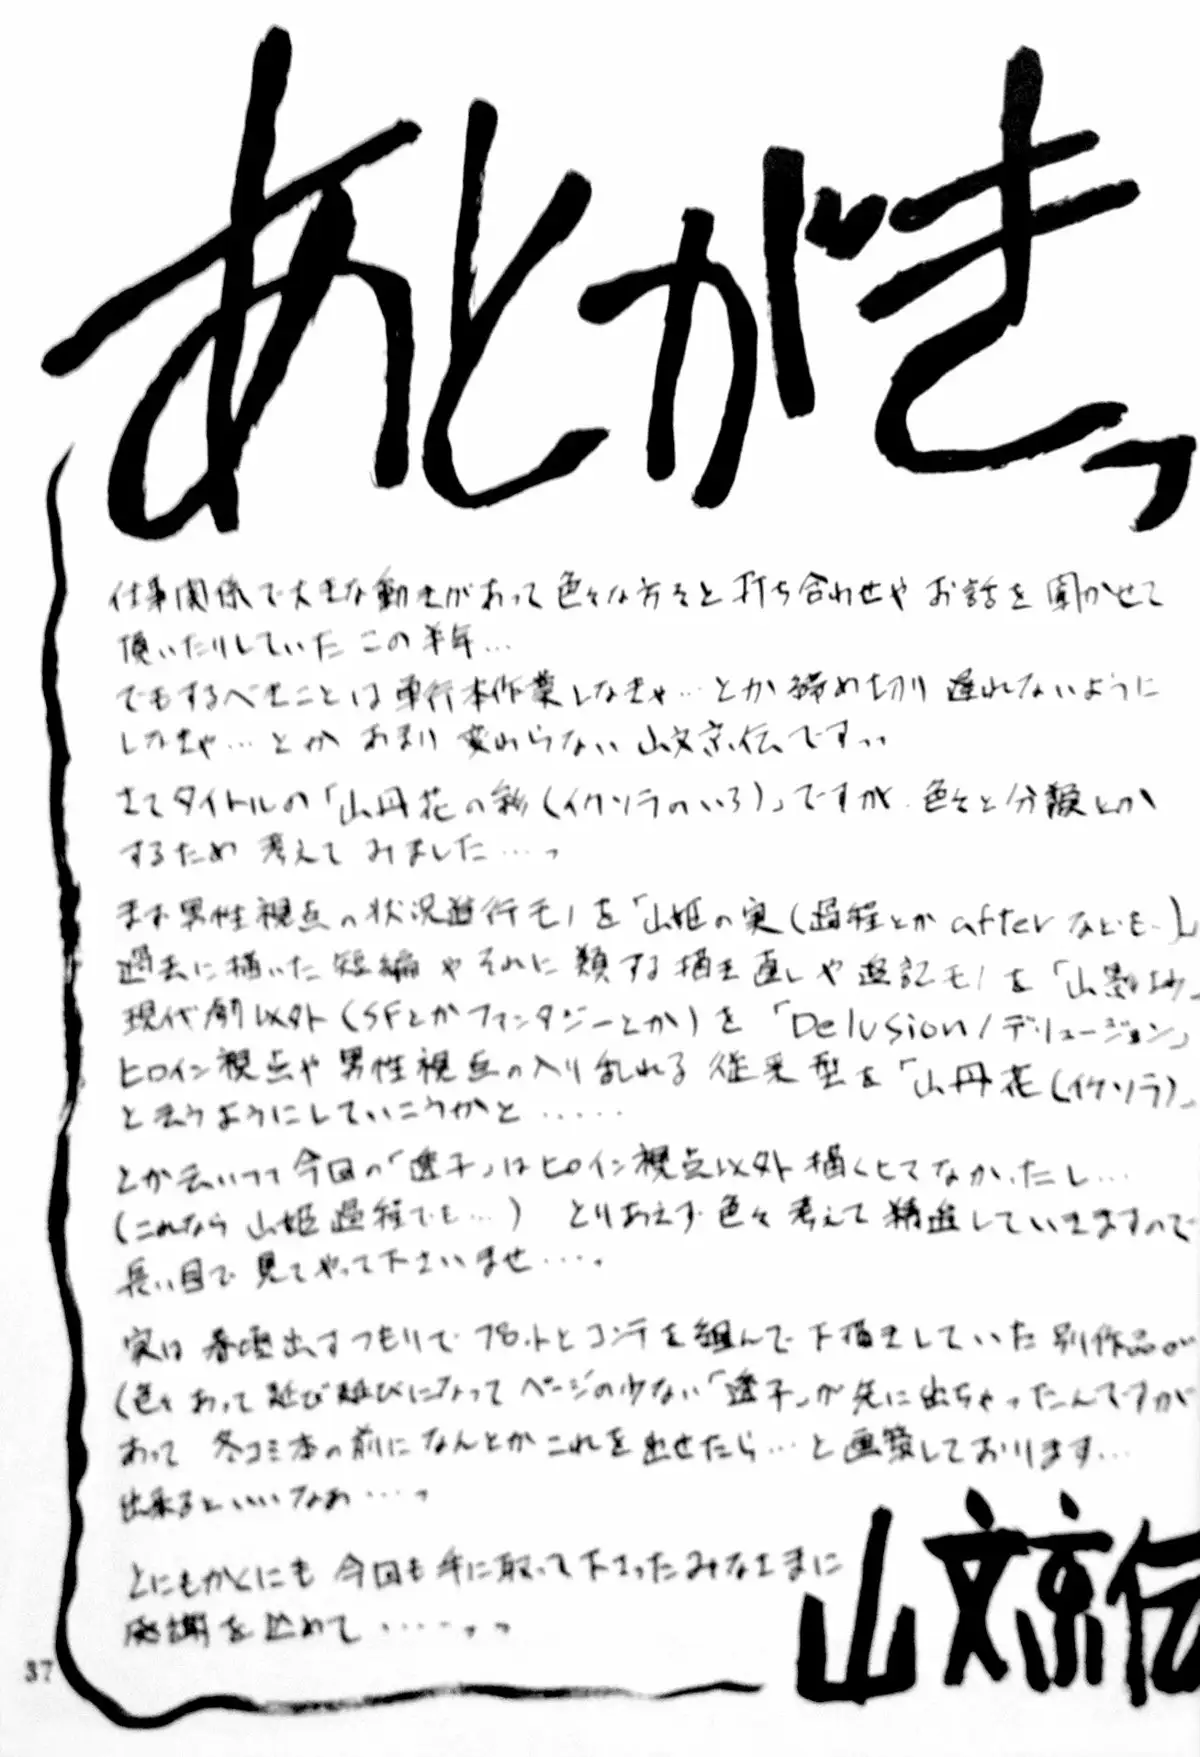 あとがきっ
仕事関係で大きな動きがあって色々な方々と打ち合わせやお話を聞かせて
頂いたりしていたこの半年…
でもするべきことは単行本作業しなきゃ…とか締め切り遅れないように
しなきゃ…とかあまり変わらない山文京伝ですっっ
さてタイトルの「山丹花の彩(イケソラのいろ)」ですが、色々と分類とか
するため考えてみました……っ
まず男性視点の状況進行モノを「山姫の実(過程とかafterなども…)」
過去に描いた短編やそれに類する描き直しや追記モノを「山影抄」
現代劇以外(SFとかファンタジーとか)を「Delusion/デリュージョン」
ヒロイン視点や男性視点の入り乱れる従来型を「山丹花(イケソラ)」
と云うようにしていこうかと……
とか云いつつ今回の「透子」はヒロイン視点以外描くヒマなかったし…
(これなら山姫過程でも…) とりあえず色々考えて精進していきますので
長い目で見てやって下さいませ……。
実は春頃出すつもりでプロットとコンテを組んで下描きしていた別作品が
(色々あって延び延びになってページの少ない「透子」が先に出ちゃったんですが
あって 冬コミ本の前になんとかこれを出せたら…と画策しております…
出来るといいなあ……っ
とにもかくにも今回も手に取って下さったみなさまに
感謝を込めて………っっ
山文京伝
37